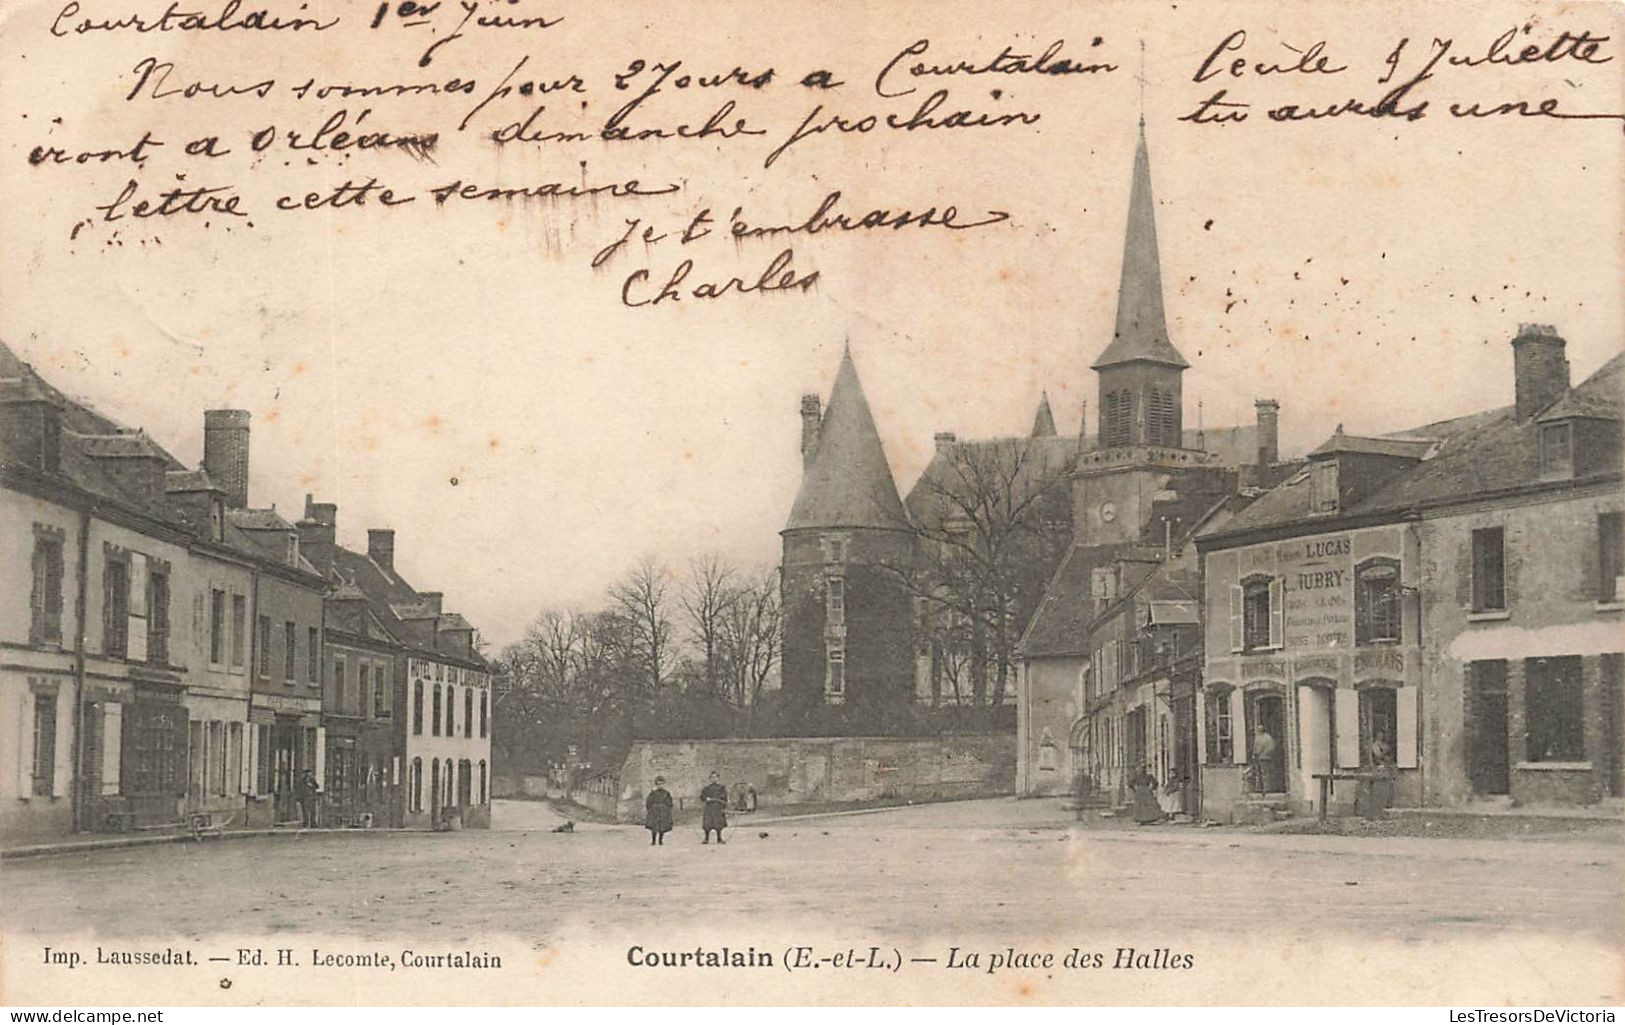 Courtalain 1er Juin
Nous sommes pour 2 Jours a Courtalain Cecile & Juliette
iront a Orléans dimanche prochain tu auras une
lettre cette semaine
Je t'embrasse
Charles
LUCAS
AUBRY
ENGRAIS
HÔTEL DU BON LABOUREUR
Imp. Laussedat. — Ed. H. Lecomte, Courtalain
Courtalain (E.-et-L.) — La place des Halles
https://www.delcampe.net/fr
LesTresorsDeVictoria